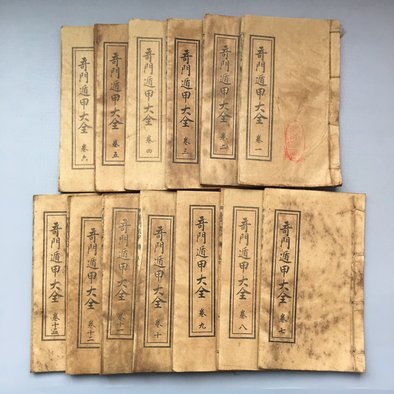 奇門遁甲大全 卷一
奇門遁甲大全 卷二
奇門遁甲大全 卷三
奇門遁甲大全 卷四
奇門遁甲大全 卷五
奇門遁甲大全 卷六
奇門遁甲大全 卷七
奇門遁甲大全 卷八
奇門遁甲大全 卷九
奇門遁甲大全 卷十
奇門遁甲大全 卷十一
奇門遁甲大全 卷十二
奇門遁甲大全 卷十三